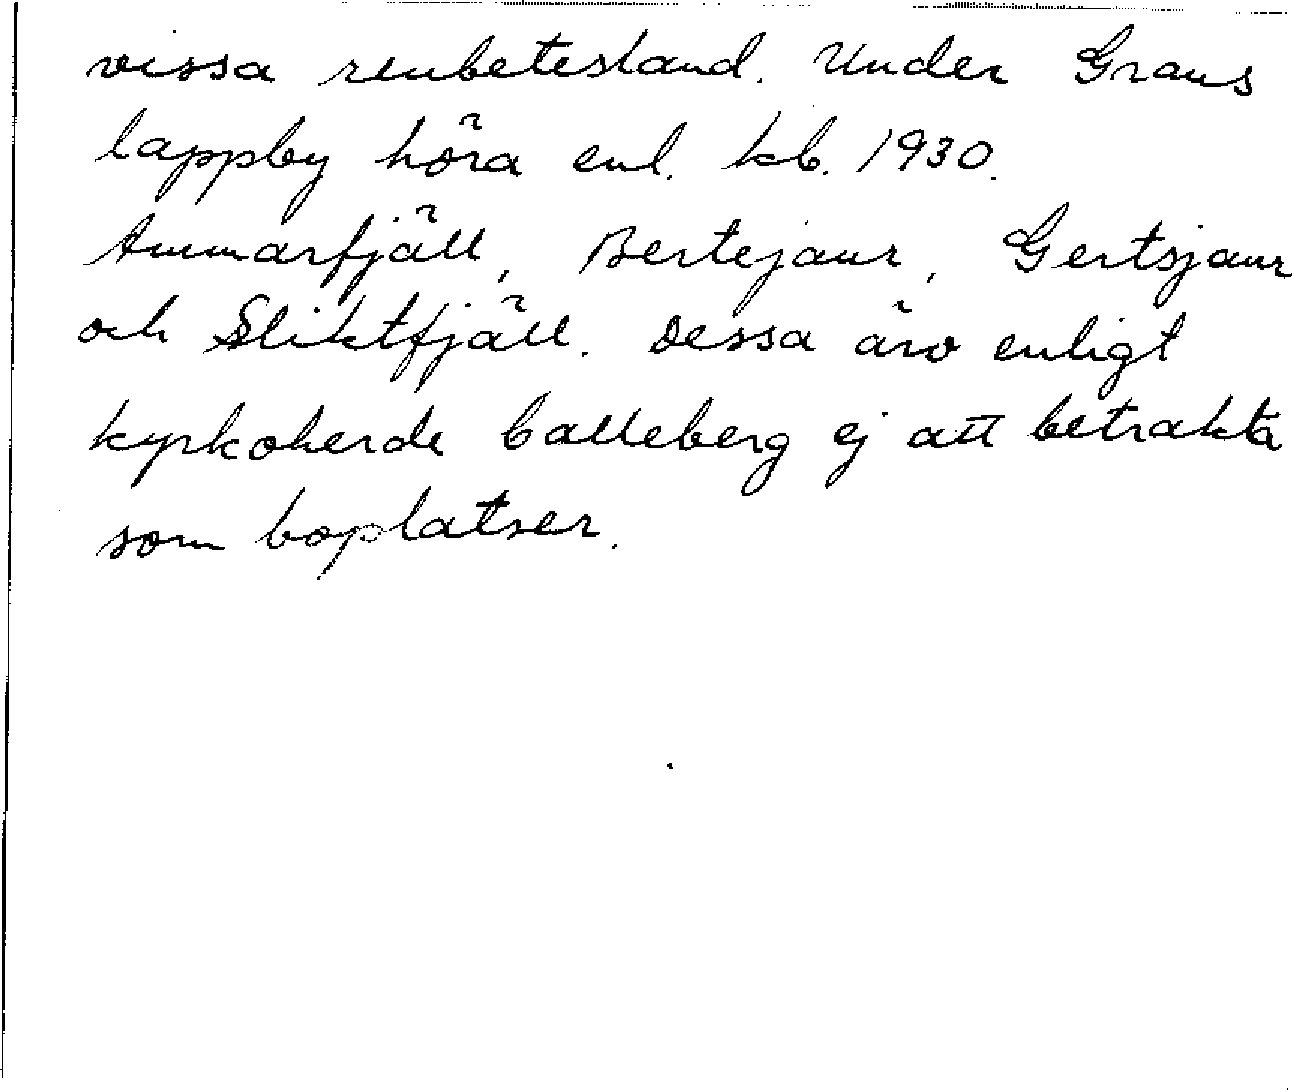 vissa renbetesland. Under Grans
lappby höra enl. kb. 1930.
Ammarfjäll, Bertejaur, Gertsjaur
och Sliktfjäll. Dessa äro enligt
kyrkoherde Calleberg ej att betrakta
som boplatser.